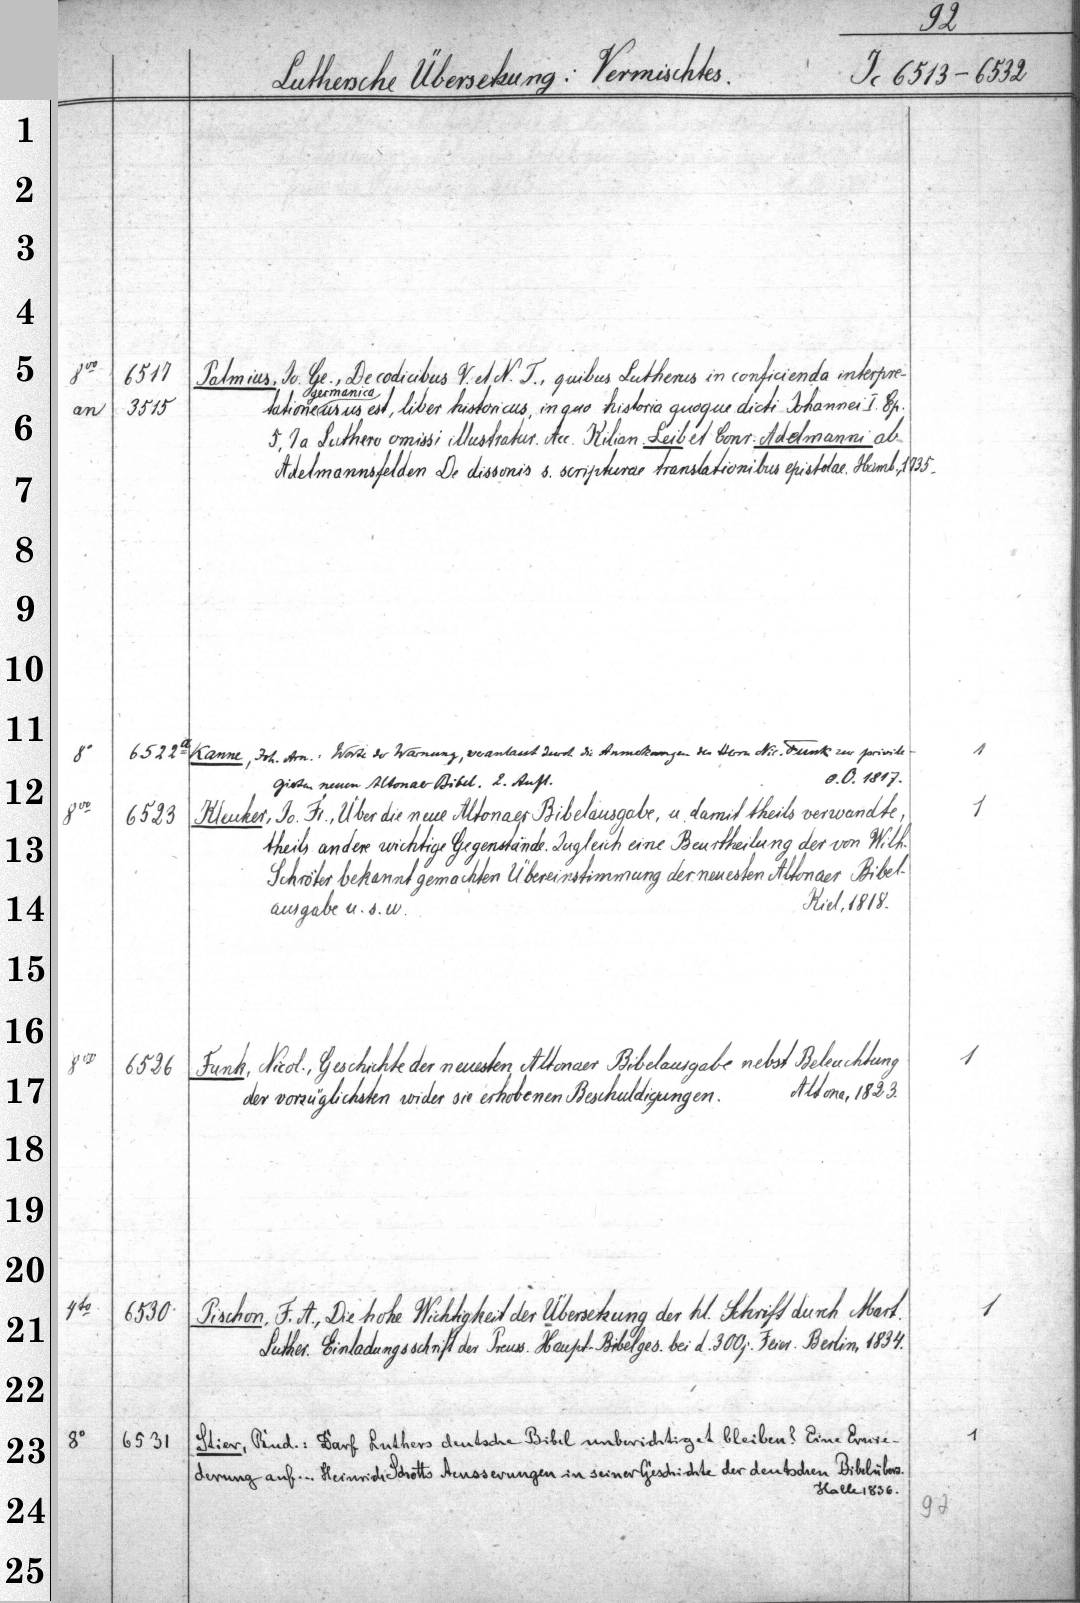 92
Luthersche Übersetzung: Vermischtes. Ic 6513-6532
1
2
3
4
5
6
7
8
9
10
11
12
13
14
15
16
17
18
19
20
21
22
23
24
25
8vo 6517 Palmius, Jo. Ge., De codicibus V. et N. T., quibus Lutherus in conficienda interpre-
germanica
an 3515 tatione usus est, liber historicus, in quo historia quoque dicti Johannei I. Ep.
5, 7 a Luthero omissi illustratur. Acc. Kilian. Leib et Conr. Adelmanni ab
Adelmannsfelden De dissonis s. scripturae translationibus epistolae. Hamb., 1735.
8° 6522a Kanne, Joh. Arn.: Worte der Warnung, veranlasst durch die Anmerkungen des Herrn Nic. Funk zur privile- 1
girten neuen Altonaer Bibel. 2. Aufl. o.O. 1817.
8vo 6523 Kleuker, Jo. Fr., Über die neue Altonaer Bibelausgabe, u. damit theils verwandte, 1
theils andere wichtige Gegenstände. Zugleich eine Beurtheilung der von Wilh.
Schröter bekannt gemachten Übereinstimmung der neuesten Altonaer Bibel-
ausgabe u. s. w. Kiel, 1818.
8vo 6526 Funk, Nicol., Geschichte der neuesten Altonaer Bibelausgabe nebst Beleuchtung 1
der vorzüglichsten wider sie erhobenen Beschuldigungen. Altona, 1823.
4to 6530 Pischon, F. A., Die hohe Wichtigkeit der Übersetzung der hl. Schrift durch Mart. 1
Luther. Einladungsschrift der Preuss. Haupt-Bibelges. bei d. 300j. Feier. Berlin, 1834.
8° 6531 Stier, Rud.: Darf Luthers deutsche Bibel unberichtiget bleiben? Eine Erwie- 1
derung auf... Heinrich Schotts Aeusserungen in seiner Geschichte der deutschen Bibelübers.
Halle 1836.
92